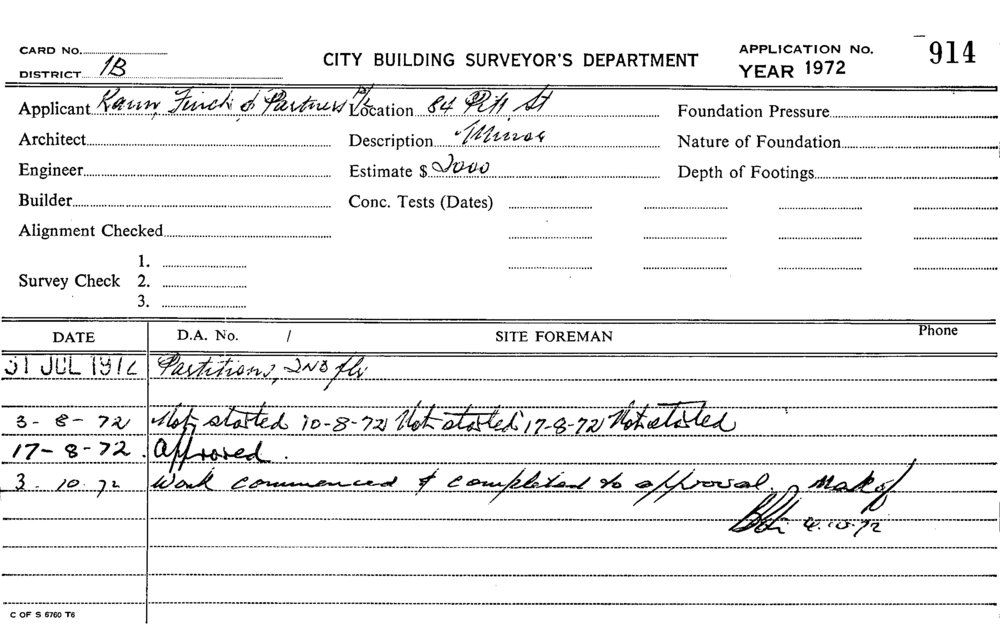 CARD No.
DISTRICT 1B
CITY BUILDING SURVEYOR'S DEPARTMENT
APPLICATION No. 914
YEAR 1972
Applicant Kann, Finch & Partners P/L Location 84 Pitt St Foundation Pressure
Architect Description Minor Nature of Foundation
Engineer Estimate $ 2000 Depth of Footings
Builder Conc. Tests (Dates)
Alignment Checked
1.
Survey Check 2.
3.
DATE D.A. No. / SITE FOREMAN Phone
31 JUL 1972 Partitions, 2ND flr
3-8-72 Not started 10-8-72 Not started 17-8-72 Not started
17-8-72. Approved.
3.10.72 Work commenced & completed to approval.
4.10.72
C OF S 5760 T6